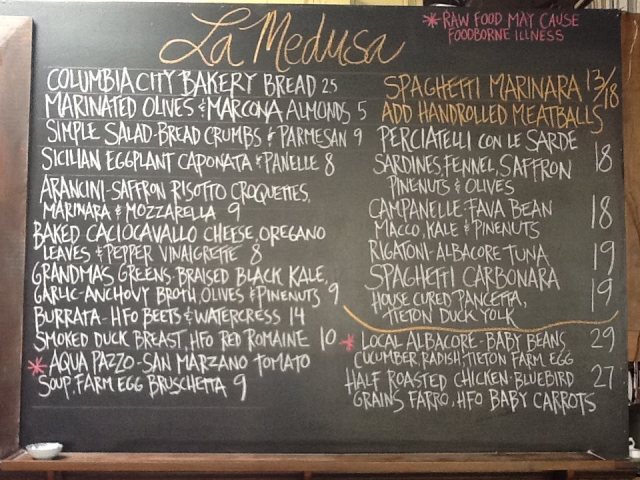 La Medusa
* RAW FOOD MAY CAUSE
FOODBORNE ILLNESS
COLUMBIA CITY BAKERY BREAD 25
MARINATED OLIVES & MARCONA ALMONDS 5
SIMPLE SALAD-BREAD CRUMBS & PARMESAN 9
SICILIAN EGGPLANT CAPONATA & PANELLE 8
ARANCINI-SAFFRON RISOTTO CROQUETTES,
MARINARA & MOZZARELLA 9
BAKED CACIOCAVALLO CHEESE, OREGANO
LEAVES & PEPPER VINAIGRETTE 8
GRANDMA'S GREENS, BRAISED BLACK KALE,
GARLIC-ANCHOVY BROTH, OLIVES & PINENUTS 9
BURRATA-HFO BEETS & WATERCRESS 14
SMOKED DUCK BREAST, HFO RED ROMAINE 10
* AQUA PAZZO-SAN MARZANO TOMATO
SOUP, FARM EGG BRUSCHETTA 9
SPAGHETTI MARINARA 13/18
ADD HANDROLLED MEATBALLS
PERCIATELLI CON LE SARDE
SARDINES, FENNEL, SAFFRON 18
PINENUTS & OLIVES
CAMPANELLE-FAVA BEAN 18
MACCO, KALE & PINENUTS
RIGATONI-ALBACORE TUNA 19
SPAGHETTI CARBONARA 19
HOUSE CURED PANCETTA,
TIETON DUCK YOLK
* LOCAL ALBACORE-BABY BEANS 29
CUCUMBER, RADISH, TIETON FARM EGG
HALF ROASTED CHICKEN-BLUEBIRD 27
GRAINS FARRO, HFO BABY CARROTS